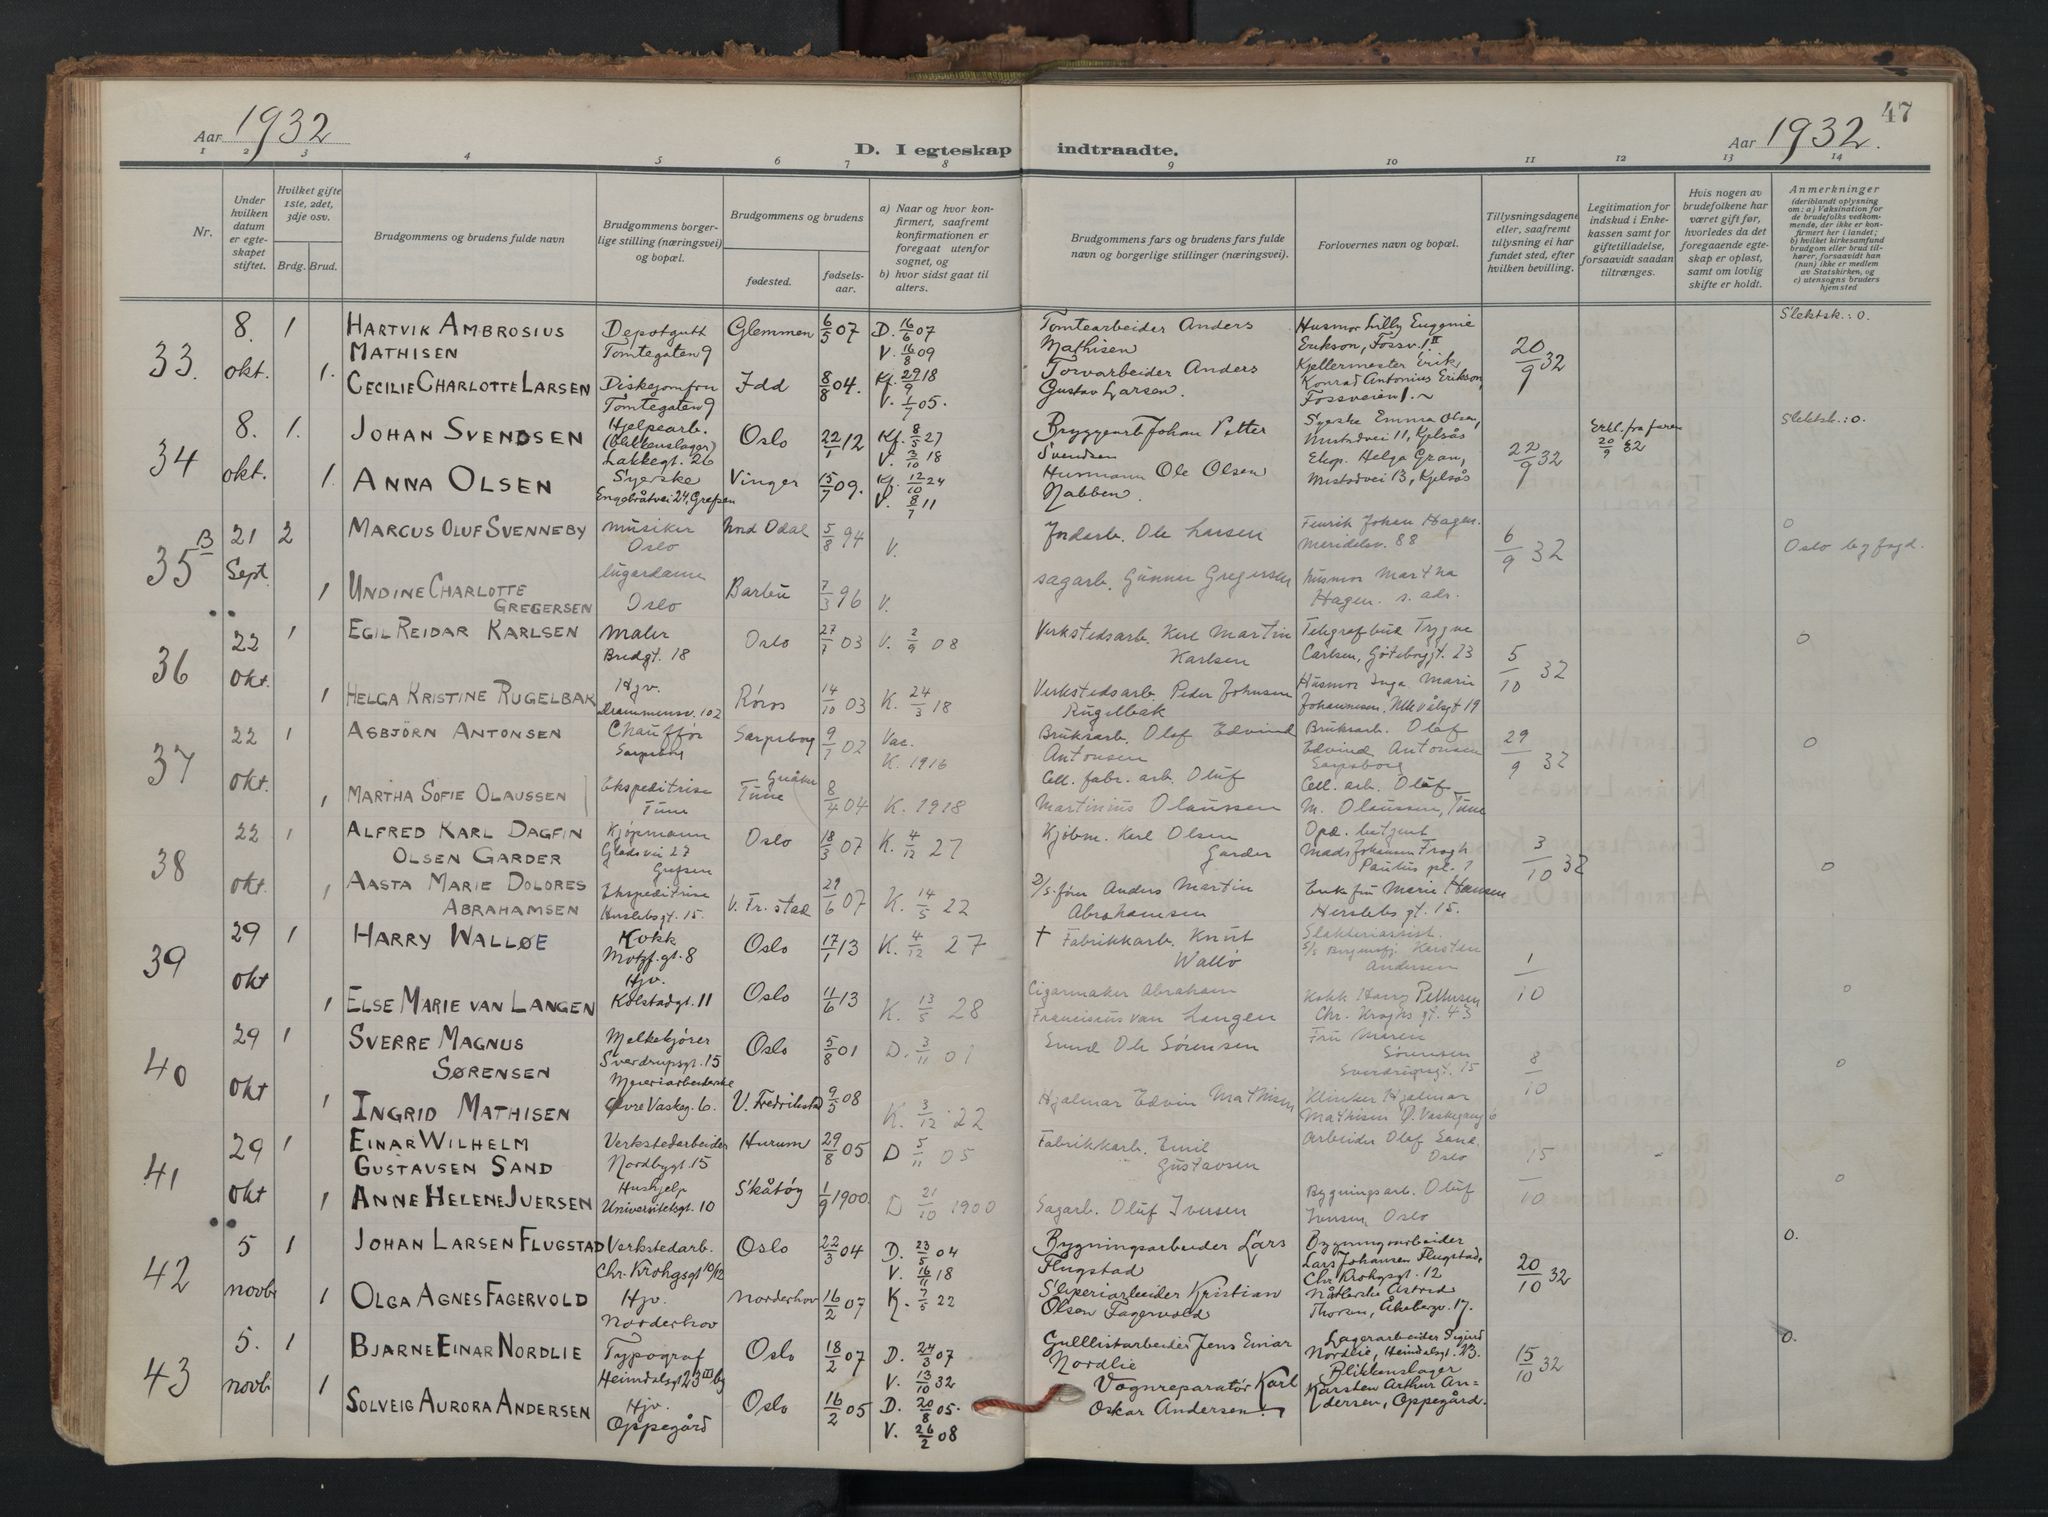 47
Aar 1932
D. I egteskap indtraadte.
Aar 1932.
1 2 3 4 5 6 7 8 9 10 11 12 13 14
Nr.
Under hvilken datum er egteskapet stiftet.
Hvilket gifte 1ste, 2det, 3dje osv.
Brdg. Brud.
Brudgommens og brudens fulde navn
Brudgommens borgerlige stilling (næringsvei) og bopæl.
Brudgommens og brudens
fødested.
fødselsaar.
a) Naar og hvor konfirmert, saafremt konfirmationen er foregaat utenfor sognet, og
b) hvor sidst gaat til alters.
Brudgommens fars og brudens fars fulde navn og borgerlige stillinger (næringsvei).
Forlovernes navn og bopæl.
Tillysningsdagene eller, saafremt tillysning ei har fundet sted, efter hvilken bevilling.
Legitimation for indskud i Enkekassen samt for giftetilladelse, forsaavidt saadan tiltrænges.
Hvis nogen av brudefolkene har været gift før, hvorledes da det foregaaende egteskap er opløst, samt om lovlig skifte er holdt.
Anmerkninger
(deriblandt oplysning om: a) Vaksination for de brudefolks vedkommende, der ikke er konfirmert her i landet; b) hvilket kirkesamfund brudgom eller brud tilhører, forsaavidt han (hun) ikke er medlem av Statskirken, og c) utensogns bruders hjemsted
33. 8. okt. 1 Hartvik Ambrosius Mathisen Depotgutt Tomtegaten 9 Glemmen 6/5 07 D. 16/6 07 V. 16/8 09 Tomtearbeider Anders Mathisen Husmor Lilly Eugenie Erikson, Fossv. 1 II 20/9 32 Slektsk.: 0.
1. Cecilie Charlotte Larsen Diskejomfru Tomtegaten 9 Idd 8/8 04. Kf. 29/9 18 V. 1/7 05. Torvarbeider Anders Gustav Larsen. Kjellermester Erik Konrad Antonius Erikson, Fossveien 1.
34 8. okt. 1. Johan Svendsen Hjelpearb. (blikkenslager) Lakkegt. 26 Oslo 22/1 12 Kf. 8/5 27 V. 3/10 18 Bryggearb Johan Petter Svendsen Syerske Emma Olsen, Mistadvei 11, Kjelsås 22/9 32 Erkl. fra faren 20/9 32 Slektsk.: 0.
1. Anna Olsen Syerske Engebråtvei 24, Grefsen Vinger 15/7 09. Kf. 12/10 24 V. 8/7 11 Husmann Ole Olsen Nabben. Eksp. Helga Gran, Mistadvei 13, Kjelsås
35 B 21 Sept 2 Marcus Oluf Svenneby musiker Oslo Nord Odal 5/8 94 V. Jordarb. Ole Larsen Fenrik Johan Hagen. Meridelsv. 88 6/9 32 0 Oslo byfogd.
1 Undine Charlotte Gregersen lugardame Oslo Barbu 7/3 96 V. sagarb. Gunner Gregersen husmor Martha Hagen. s. adr.
36 22 okt. 1 Egil Reidar Karlsen Maler Bredgt. 18 Oslo 27/7 03 V. 2/9 08 Verkstedsarb. Karl Martin Karlsen Telegrafbud Trygve Carlsen, Göteborggt. 23 5/10 32 0
1 Helga Kristine Rugelbak Hjv. Drammensv. 102 Röros 14/10 03 K. 24/3 18 Verkstedsarb. Peder Johnsen Rugelbak Husmor Inga Marie Johannesen, Ullevålsgt 19
37 22 okt. 1 Asbjörn Antonsen Chaufför Sarpsborg Sarpsborg 9/7 02 Vac. K. 1916 Bruksarb. Olaf Edvind Antonsen Bruksarb. Olaf Edvind Antonsen Sarpsborg 29/9 32 0
1 Martha Sofie Olaussen Ekspeditrise Tune Gråkar Tune 8/4 04 K. 1918 Cell. fabr. arb. Oluf Martinius Olaussen Cell. arb. Oluf M. Olaussen, Tune
38 22 okt. 1 Alfred Karl Dagfin Olsen Garder Kjöpmann Gladsvei 27 Grefsen Oslo 18/3 07 K. 4/12 27 Kjöbm. Karl Olsen Garder Opd. betjent Mads Johansen Frogh Paulus pl. 1 3/10 32 0
1 Aasta Marie Dolores Abrahamsen Ekspeditrise Herslebsgt. 15. V. Fr. stad 29/6 07 K. 14/5 22 D/s. förer Anders Martin Abrahamsen Enkefru Marie Hansen Herslebs gt. 15.
39 29 okt 1 Harry Walløe Kokk Motzf. gt. 8 Oslo 17/1 13 K. 4/12 27 † Fabrikkarb. Knut Wallö Slakteriassist. Karsten Andersen 1/10 0
1 Else Marie van Langen Hjv. Kolstadgt. 11 Oslo 11/6 13 K. 13/5 28 Cigarmaker Abraham Franciscus van Langen Kokk Harry Pettersen Chr. Kroghs gt. 43
40 29 okt 1 Sverre Magnus Sørensen Melkekjører Sverdrupsgt. 15 Oslo 5/8 01 D. 3/11 01 Emil Ole Sørensen Fru Maren Sørensen Sverdrupsgt. 15 8/10 0
1 Ingrid Mathisen Meieriarbeiderske Øvre Vaskeg. 6. V. Fredrikstad 9/5 08 K. 3/12 22 Hjalmar Edvin Mathisen Klinker Hjalmar Mathisen Ø. Vaskegang 6
41 29 okt 1 Einar Wilhelm Gustavsen Sand Verkstedarbeider Nordbygt. 15 Hurum 29/8 05 D 5/11 05 Fabrikkarb. Emil Gustavsen Arbeider Olaf Sand. Oslo 15/10 0
1 Anne Helene Iversen Hushjelp Universitetsgt. 10 Skåtöy 1/9 1900 D 21/10 1900 Sagarb. Oluf Iversen Bygningsarb. Oluf Iversen Oslo
42 5 novb 1 Johan Larsen Flugstad Verkstedarb. Chr. Krohgsgt 10/12 Oslo 22/3 04 D. 23/5 04 V. 16/11 18 Bygningsarbeider Lars Flugstad Bygningsarbeider Lars Johansen Flugstad, Chr Krohgsgt. 12 20/10 32 0.
1 Olga Agnes Fagervold Hjv. Norderhov Norderhov 16/2 07 K. 7/5 22 Sliperiarbeider Kristian Olsen Fagervold Nåtlerske Astrid Thorsen, Ekebergv. 17.
43 5. novb 1 Bjarne Einar Nordlie Typograf Heimdalsgt 23 III bg Oslo 18/2 07 D. 24/3 07 V. 13/10 32 Gulllistarbeider Jens Einar Nordlie Lagerarbeider Sigurd Nordlie, Heimdalsgt. 23. 15/10 32 0.
1 Solveig Aurora Andersen Hjv. Oppegård Oslo 16/2 05 D. 20/8 05. V. 26/2 08 Vognreparatør Karl Oskar Andersen. Blikkenslager Karsten Arthur Andersen, Oppegård.